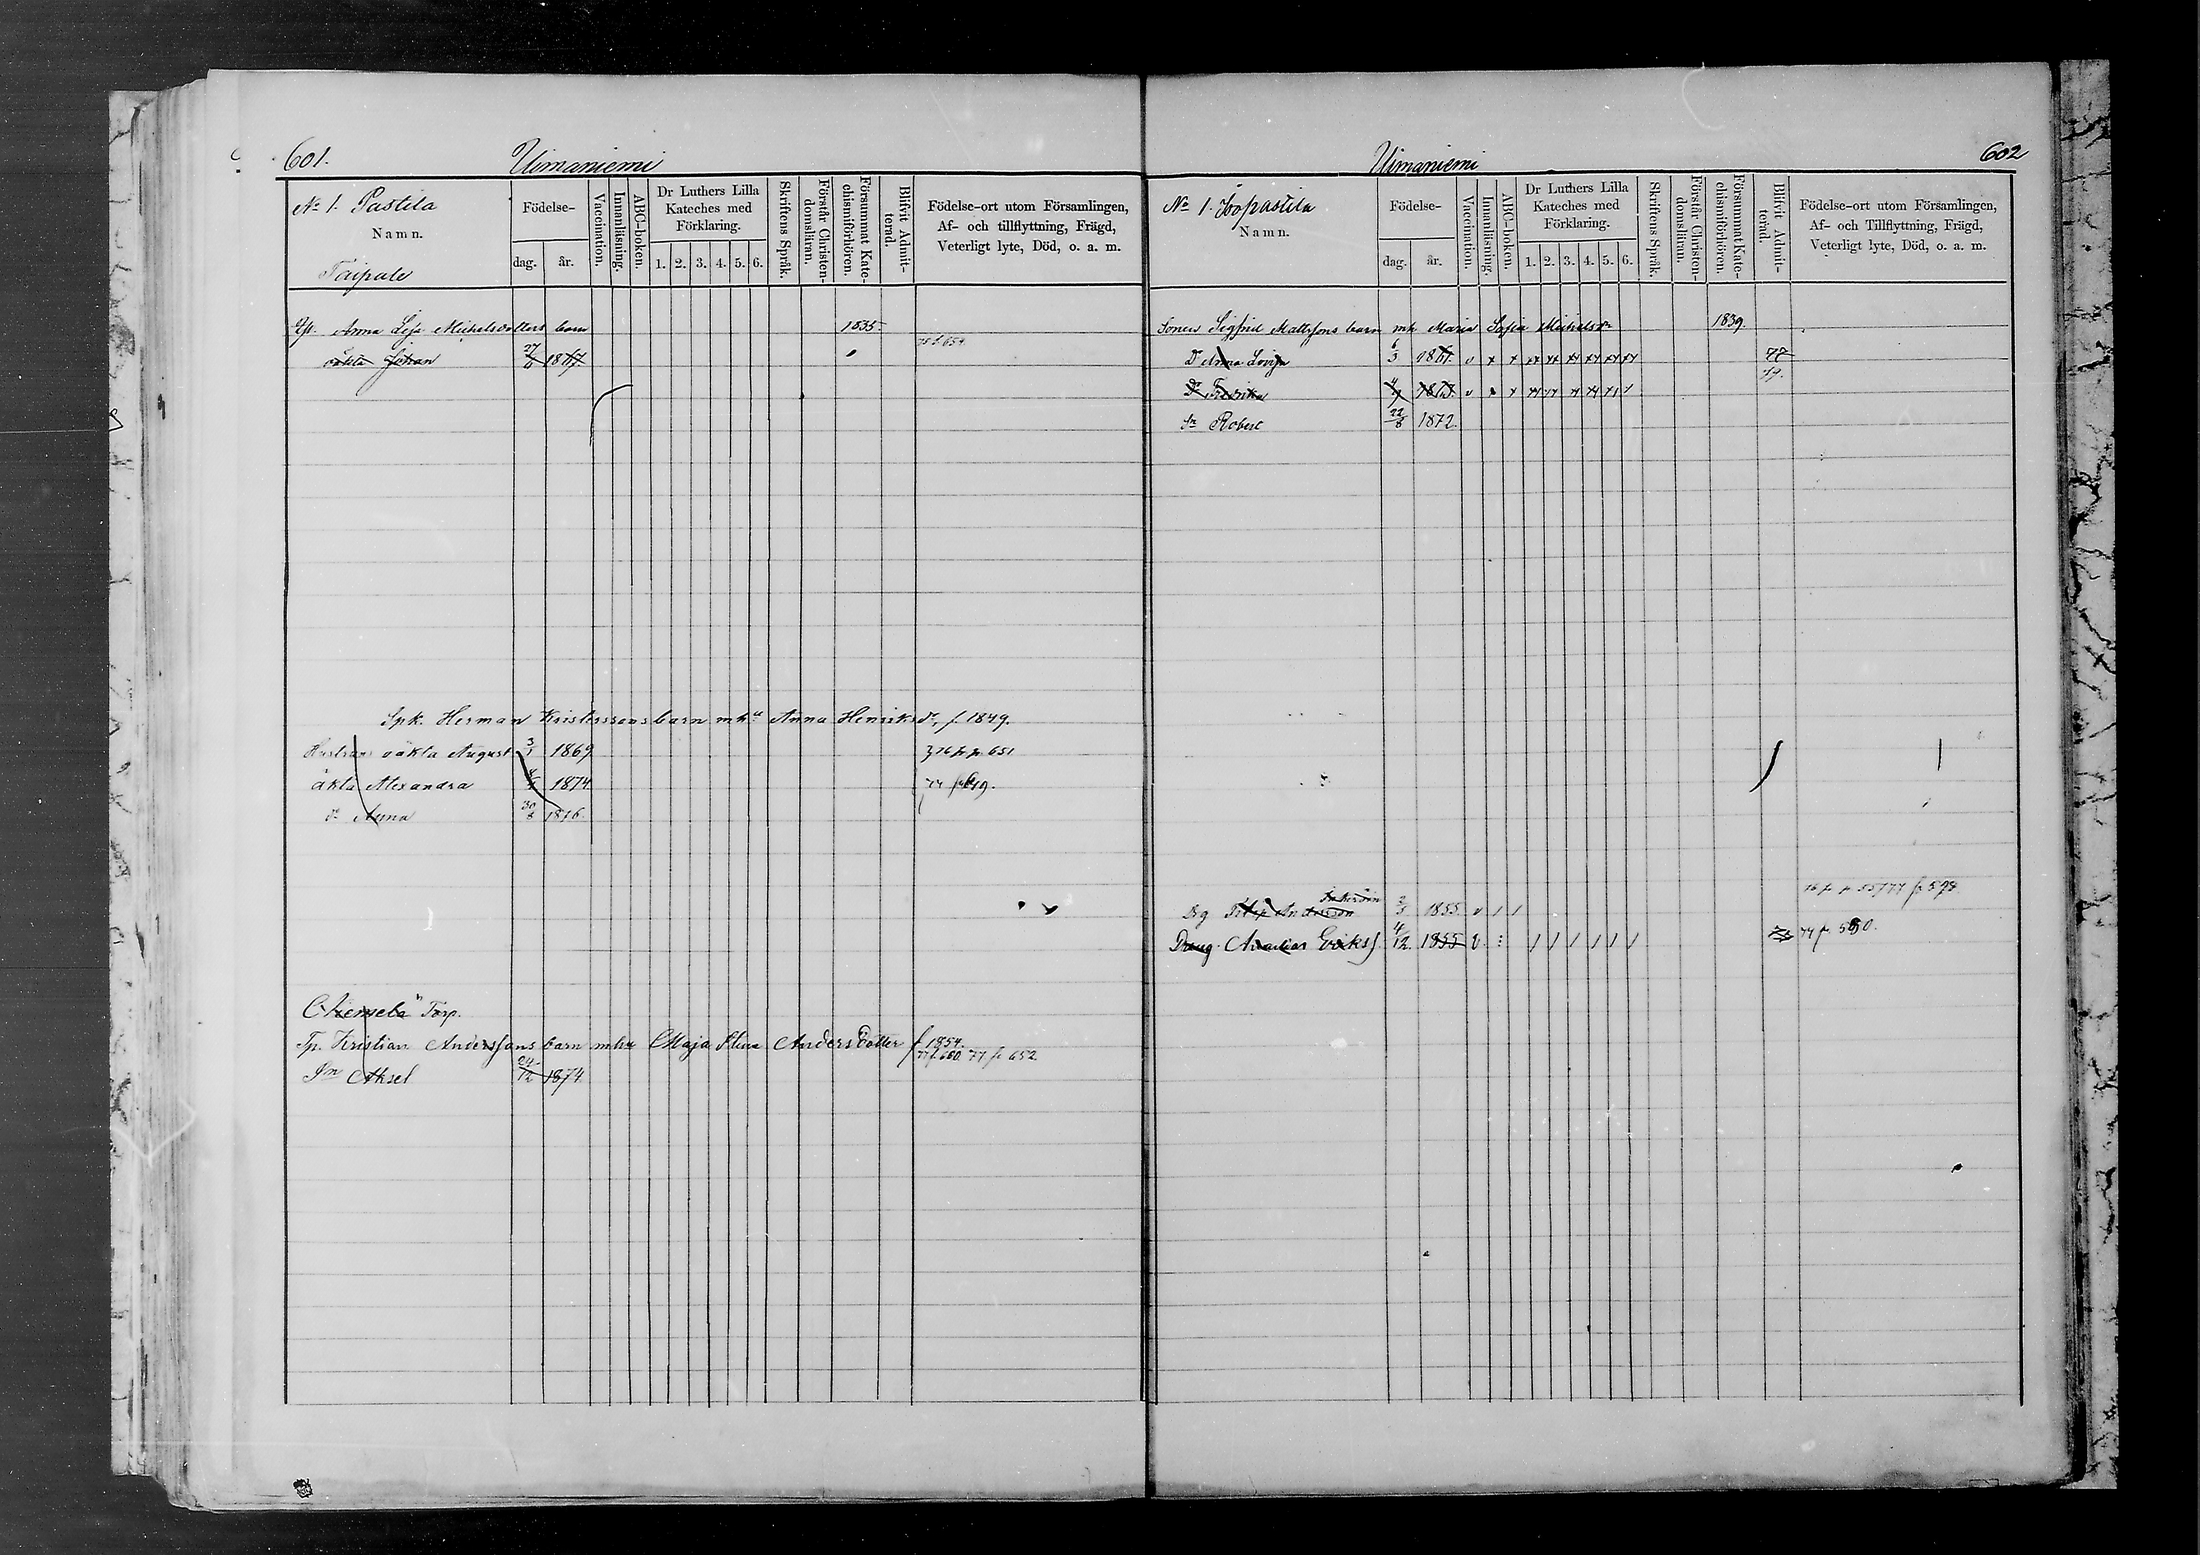 601.
Uimaniemi
No 1. Pastila
Namn.
Taipale
Födelse-
dag.
år.
Vaccination.
Innanläsning.
ABC-boken.
Dr Luthers Lilla
Kateches med
Förklaring.
1. 2. 3. 4. 5. 6.
Skriftens Språk.
Förstår Christen-
domsläran.
Försummat Kate-
chismiförhören.
Blifvit Admit-
terad.
Födelse-ort utom Församlingen,
Af- och tillflyttning, Frägd,
Veterligt lyte, Död, o. a. m.
Anna Leja Michelsdotters barn 1835
oäkta Johan 27 1867.
Spk. Herman Kristerssons barn mhu Anna Henriksdr, f. 1849.
Hustruns oäkta August 3 1869
äkta Alexandra 1874
dr Anna 30/8 1876.
Torp.
Tp. Kristian Anderssons barn mhu Maja Stina Andersdotter f 1854.
77 f. 652
Sn Aksel 24/12 1874
Uimaniemi
602
No 1. Isopastila
Namn.
Födelse-
dag.
år.
Vaccination.
Innanläsning.
ABC-boken.
Dr Luthers Lilla
Kateches med
Förklaring.
1. 2. 3. 4. 5. 6.
Skriftens Språk.
Förstår Christen-
domsläran.
Försummat Kate-
chismiförhören.
Blifvit Admit-
terad.
Födelse-ort utom Församlingen,
Af- och Tillflyttning, Frägd,
Veterligt lyte, Död, o. a. m.
Sonen Sigfrid Mattssons barn mh Maria Sofia Michelsdr 1839.
Dr Anna Lovisa 6/3 1861. v x x 77
79.
Dr Fredrika v
Sn Robert 22/8 1872.
Dg Andersson 1855 v / /
Dräng Eriks 4/12 1855 v / / / / / / 74 f. 590.